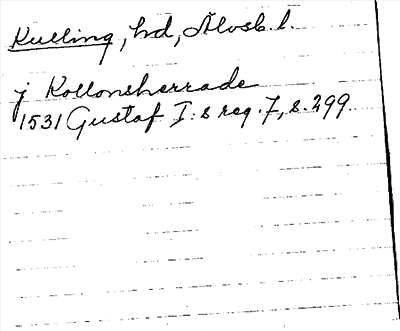 Kulling, hd, Älvsb. l.
j Kollonsherrade
1531 Gustaf I:s reg. 7, s. 299.